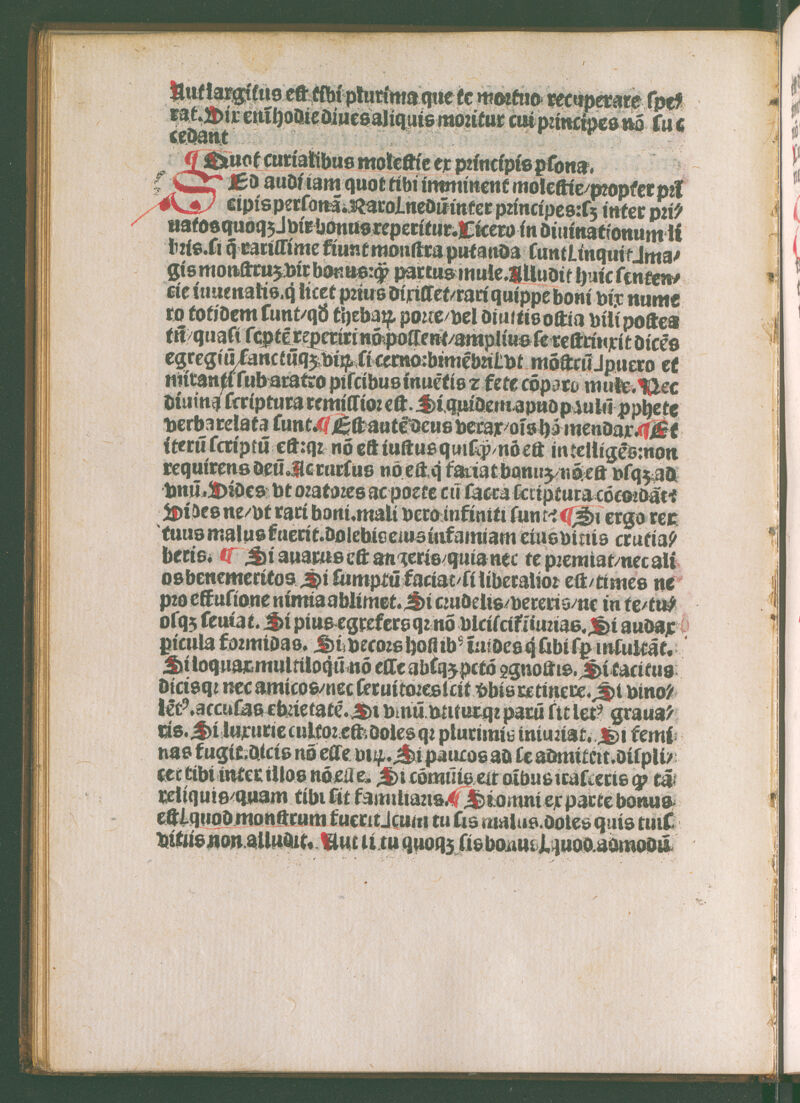 Aut largitus est tibi plurima que te mortuo recuperare spe⸗
rat. Vix em̄ hodie diues aliquis moritur cui principes nō suc
cedant
¶ Quot curialibus molestie ex principis ꝑsona.
SEd audi iam quot tibi imminent molestie/propter pri̅
cipis personā. Raro[nedū inter principes:sꝫ inter pri⸗
uatos quoqꝫ] vir bonus reperitur. Cicero in diuinationum li
bris. si q̄ rarissime fiunt monstra putanda sunt[inquit]ma/
gis monstruꝫ vir bonus:qꝙ̄ partus mule. Alludit huic senten⸗
cie iuuenalis. q̇ licet prius dixisset/rari quippe boni vix nume
ro totidem sunt/qd̄ thebaꝝ porte/vel diuitis ostia vili postea
tn̄/quasi septē reperiri nō possent/amplius se restrinxit dicēs
egregiū sanctūqꝫ viꝝ si cerno: bimēbri[vt mōstrū]puero et
miranti sub aratro piscibus inuētis ⁊ fete cōparo mule. Nec
diuina scriptura remissior est. Siquidem apud paulū ꝓphete
verba relata sunt. ¶ Est autē deus verax/oīs hō mendax. ¶ Et
iterū scriptū est:qꝛ nō est iustus quisqꝙ̄/nō est intelligēs:non
requirens deū. Ac rursus nō est q̇ faciat bonuꝫ/nō est vsqꝫ ad
vnū. Vides vt oratores ac poete cū sacra scriptura cōcordāt?
Vides ne/vt rari boni. mali vero infiniti sunt? ¶ Si ergo rex
tuus malus fuerit. dolebis eius infamiam eius vitiis crucia⸗
beris. ¶ Si auarus est angeris/quia nec te premiat/nec ali
os benemeritos. Si sumptū faciat/si liberalior est/times ne
pro effusione nimia ablimet. Si crudelis/vereris/ne in te/tu⸗
osqꝫ seuiat. Si pius egre fers qꝛ nō vlciscit̄ iniurias. Si audax
ꝑicula formidas. Si vecors hostibꝰ īuides q̇ sibi sꝑ insultāt.
Si loquax multiloq̇ū nō esse absqꝫ pctō ꝯgnostis. Si tacitus
dicis qꝛ nec amicos/nec seruitores scit vbis retinere. Si vino⸗
lētꝰ. accusas ebrietatē. Si vinū vtitur qꝛ parū sit letꝰ graua⸗
ris. Si luxurie cultor est. doles qꝛ plurimis iniuriat. Si femi
nas fugit. dicis nō esse viꝝ. Si paucos ad se admittit. displi⸗
cet tibi inter illos nō esse. Si cōmūis est oībus irasceris ꝙ tā
reliquis/quam tibi sit familiaris. ¶ Si omni ex parte bonus
est[quod monstrum fuerit]cum tu sis malus. doles quis tuis
vitiis non alludit. Aut si tu quoqꝫ sis bonus[quod admodū